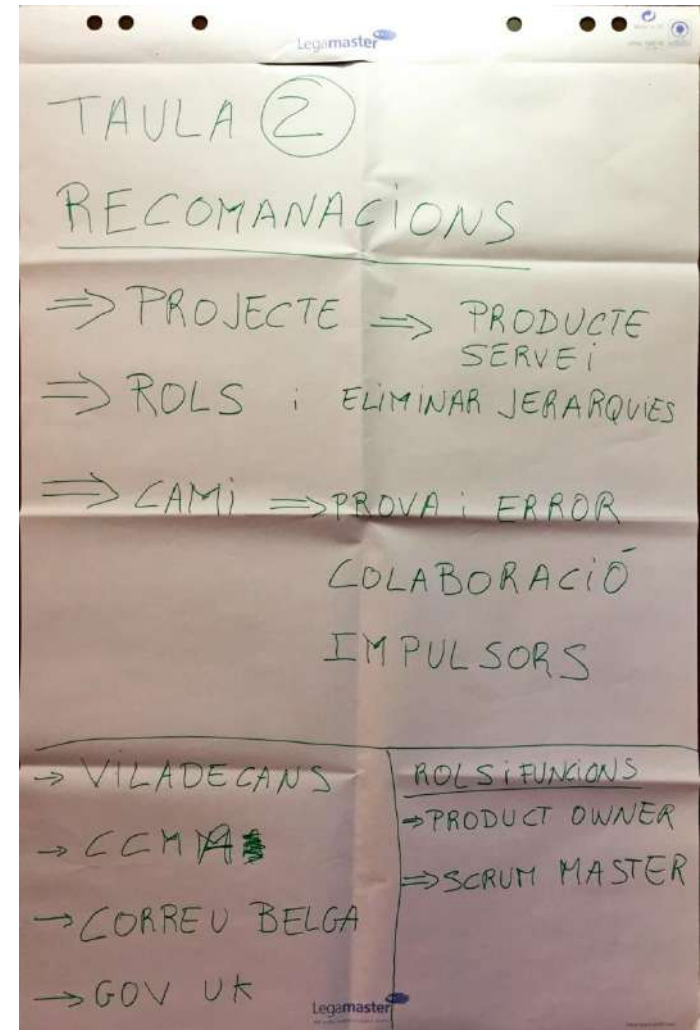 Legamaster
TAULA 2
RECOMANACIONS
⇒ PROJECTE ⇒ PRODUCTE
SERVEi
⇒ ROLS i ELiMiNAR JERARQUIES
⇒ CAMi ⇒ PROVA i ERROR
COLABORACIÓ
IMPULSORS
→ VILADECANS
→ CCMA
→ CORREU BELGA
→ GOV UK
ROLS i FUNCIONS
⇒ PRODUCT OWNER
⇒ SCRUM MASTER
Legamaster